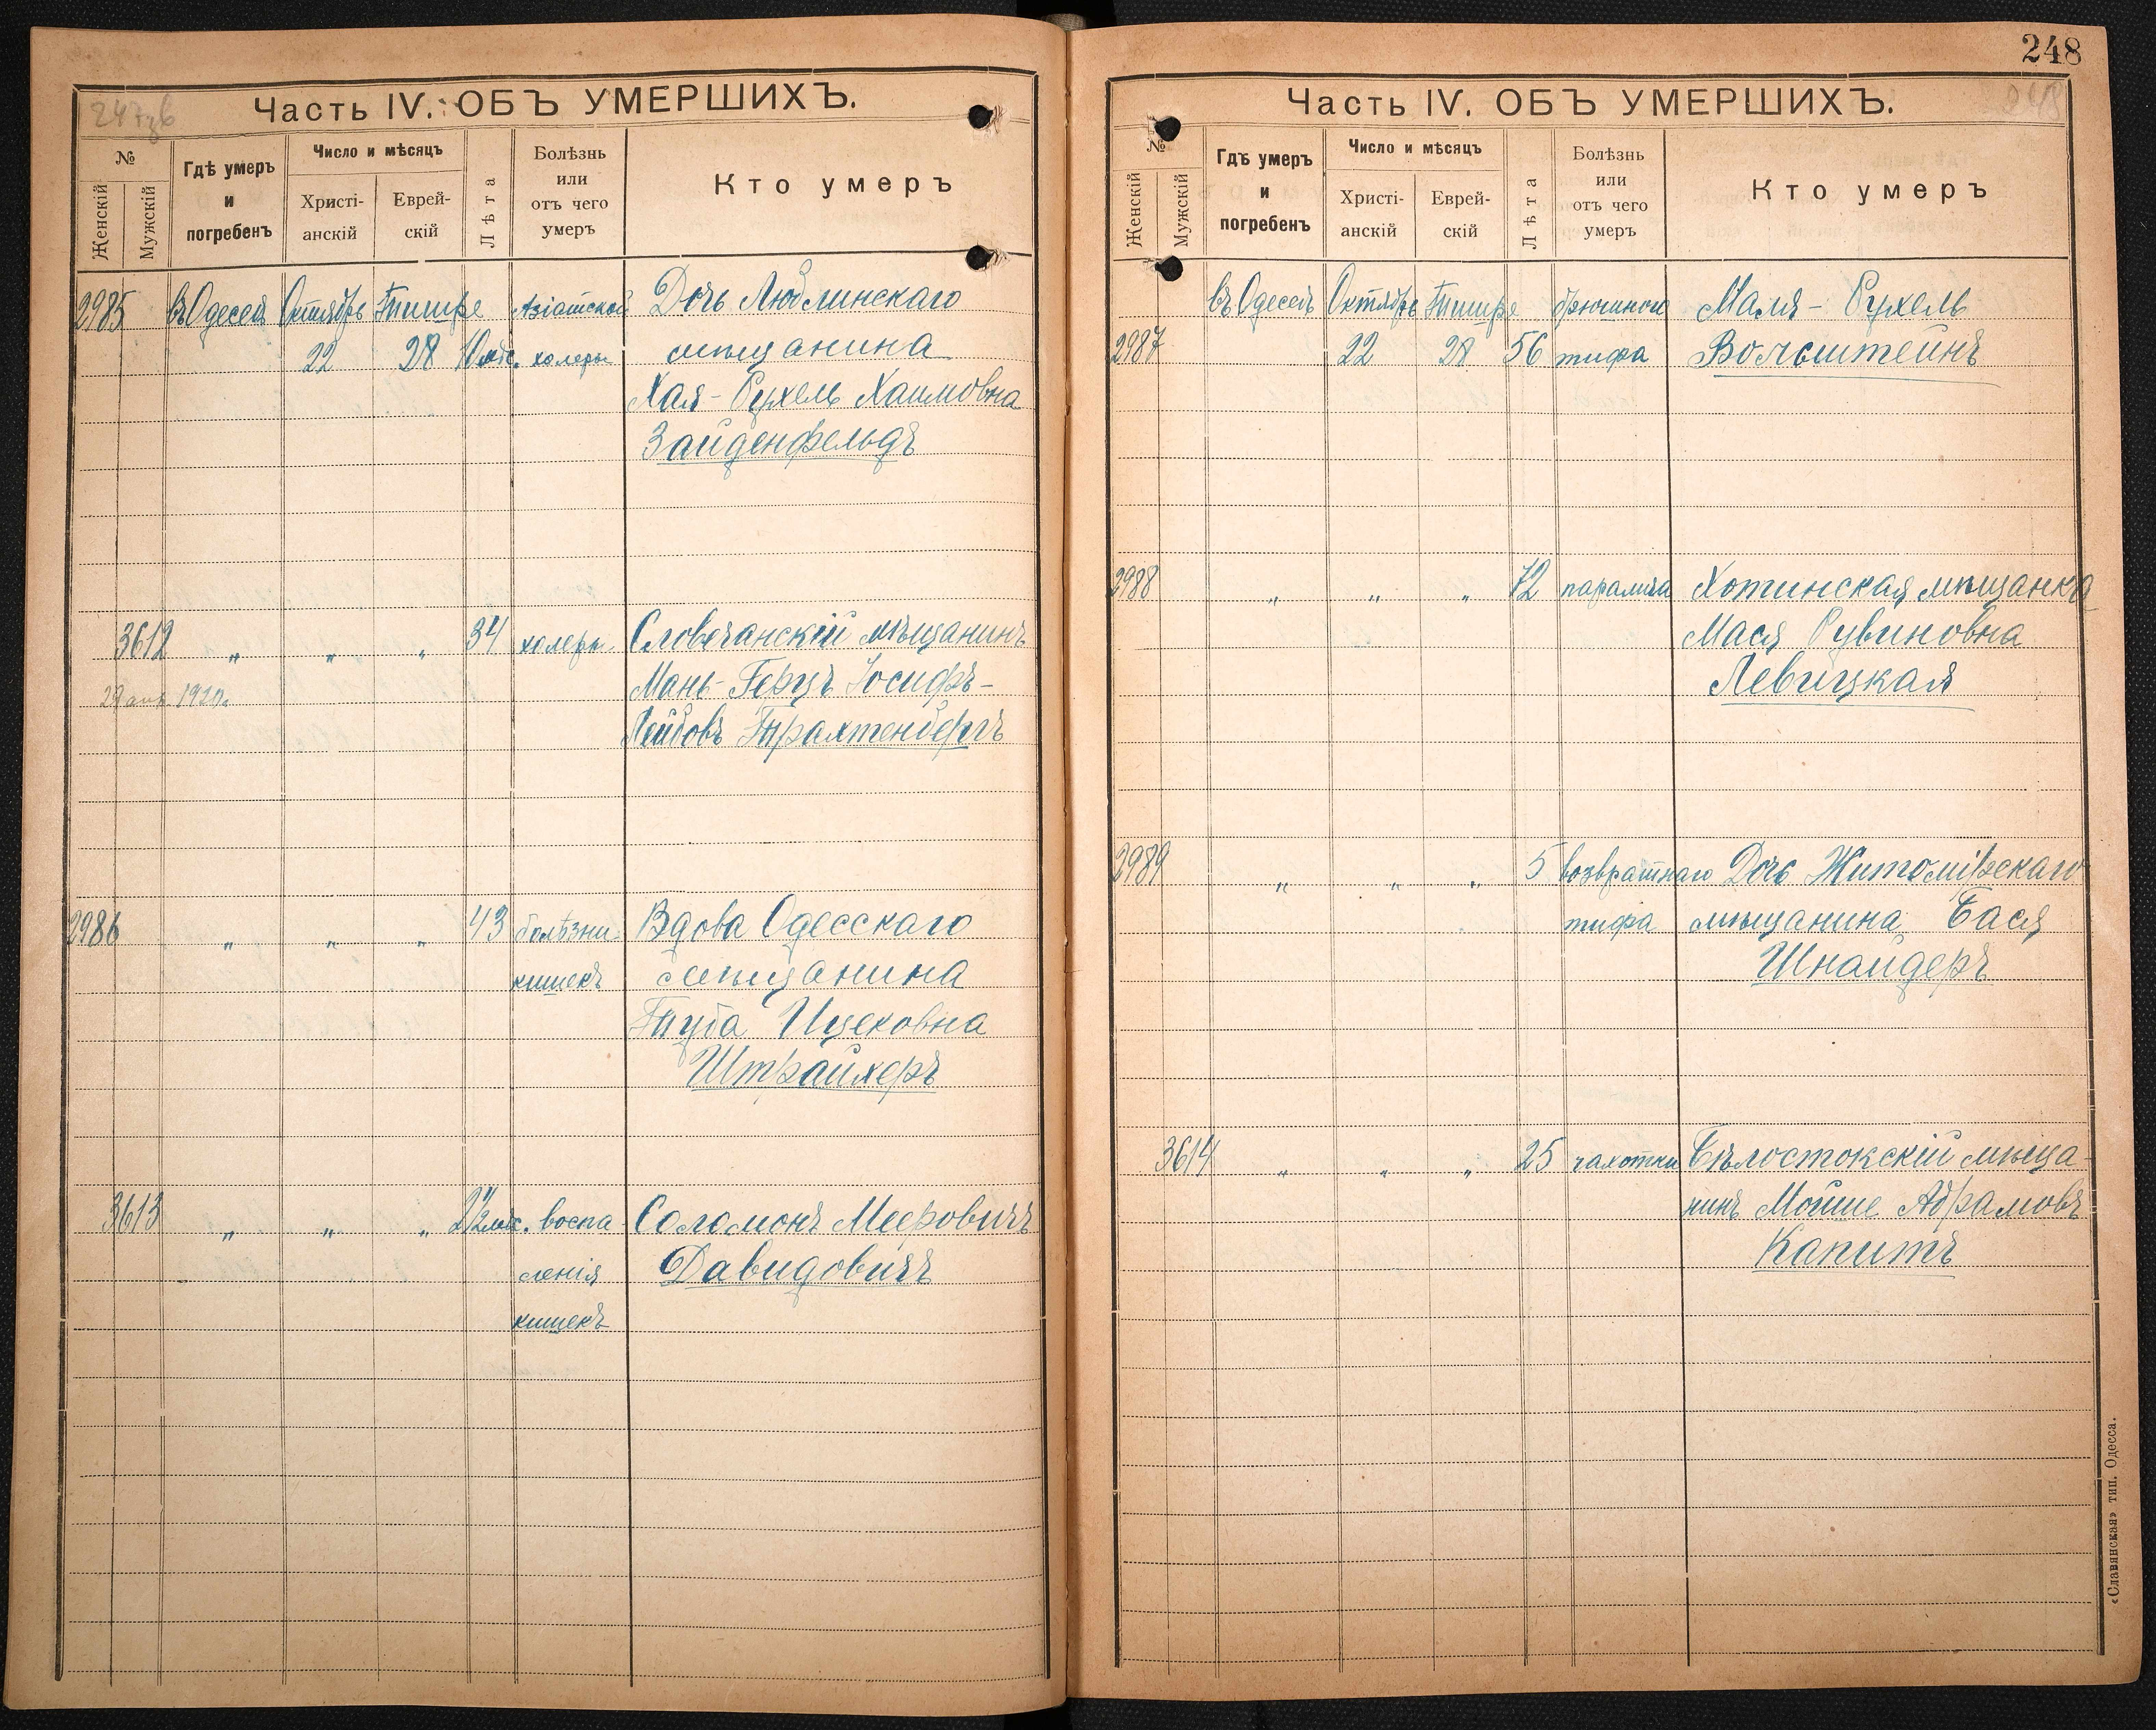 247зв
Часть IV. ОБЪ УМЕРШИХЪ.
№
Женскій
Мужскій
Гдѣ умеръ
и
погребенъ
Число и мѣсяцъ
Христі-
анскій
Еврей-
скій
Лѣта
Болѣзнь
или
отъ чего
умеръ
Кто умеръ
2985 въ Одессѣ Октябрь Тишре Азіатской Дочь Люблинскаго
22 28 10 мѣс. холеры мѣщанина
Хая-Рухель Хаимовна
Зайденфельдъ
3612 „ „ „ 34 холеры Словечанскій мѣщанинъ
1920. Мань-Герцъ Іосифъ-
Лейбовъ Трахтенбергъ
2986 „ „ „ 43 болѣзни Вдова Одесскаго
кишекъ мѣщанина
Ицековна
Штрайхеръ
3613 „ „ „ 2½ мѣс. воспа- Соломонъ Мееровичъ
ленія Давидовичъ
кишекъ
248
Часть IV. ОБЪ УМЕРШИХЪ.
№
Женскій
Мужскій
Гдѣ умеръ
и
погребенъ
Число и мѣсяцъ
Христі-
анскій
Еврей-
скій
Лѣта
Болѣзнь
или
отъ чего
умеръ
Кто умеръ
въ Одессѣ Октябрь Тишре брюшного Маля-Рухель
2987 22 28 56 тифа Вольштейнъ
2988 „ „ „ 72 паралича Хотинская мѣщанка
Мася Рувиновна
Левицкая
2989 „ „ „ 5 возвратнаго Дочь Житомірскаго
тифа мѣщанина Бася
Шнайдеръ
3614 „ „ „ 25 чахотки Бѣлостокскій мѣща-
нинъ Мойше Абрамовъ
Капитъ
«Славянская» тип. Одесса.